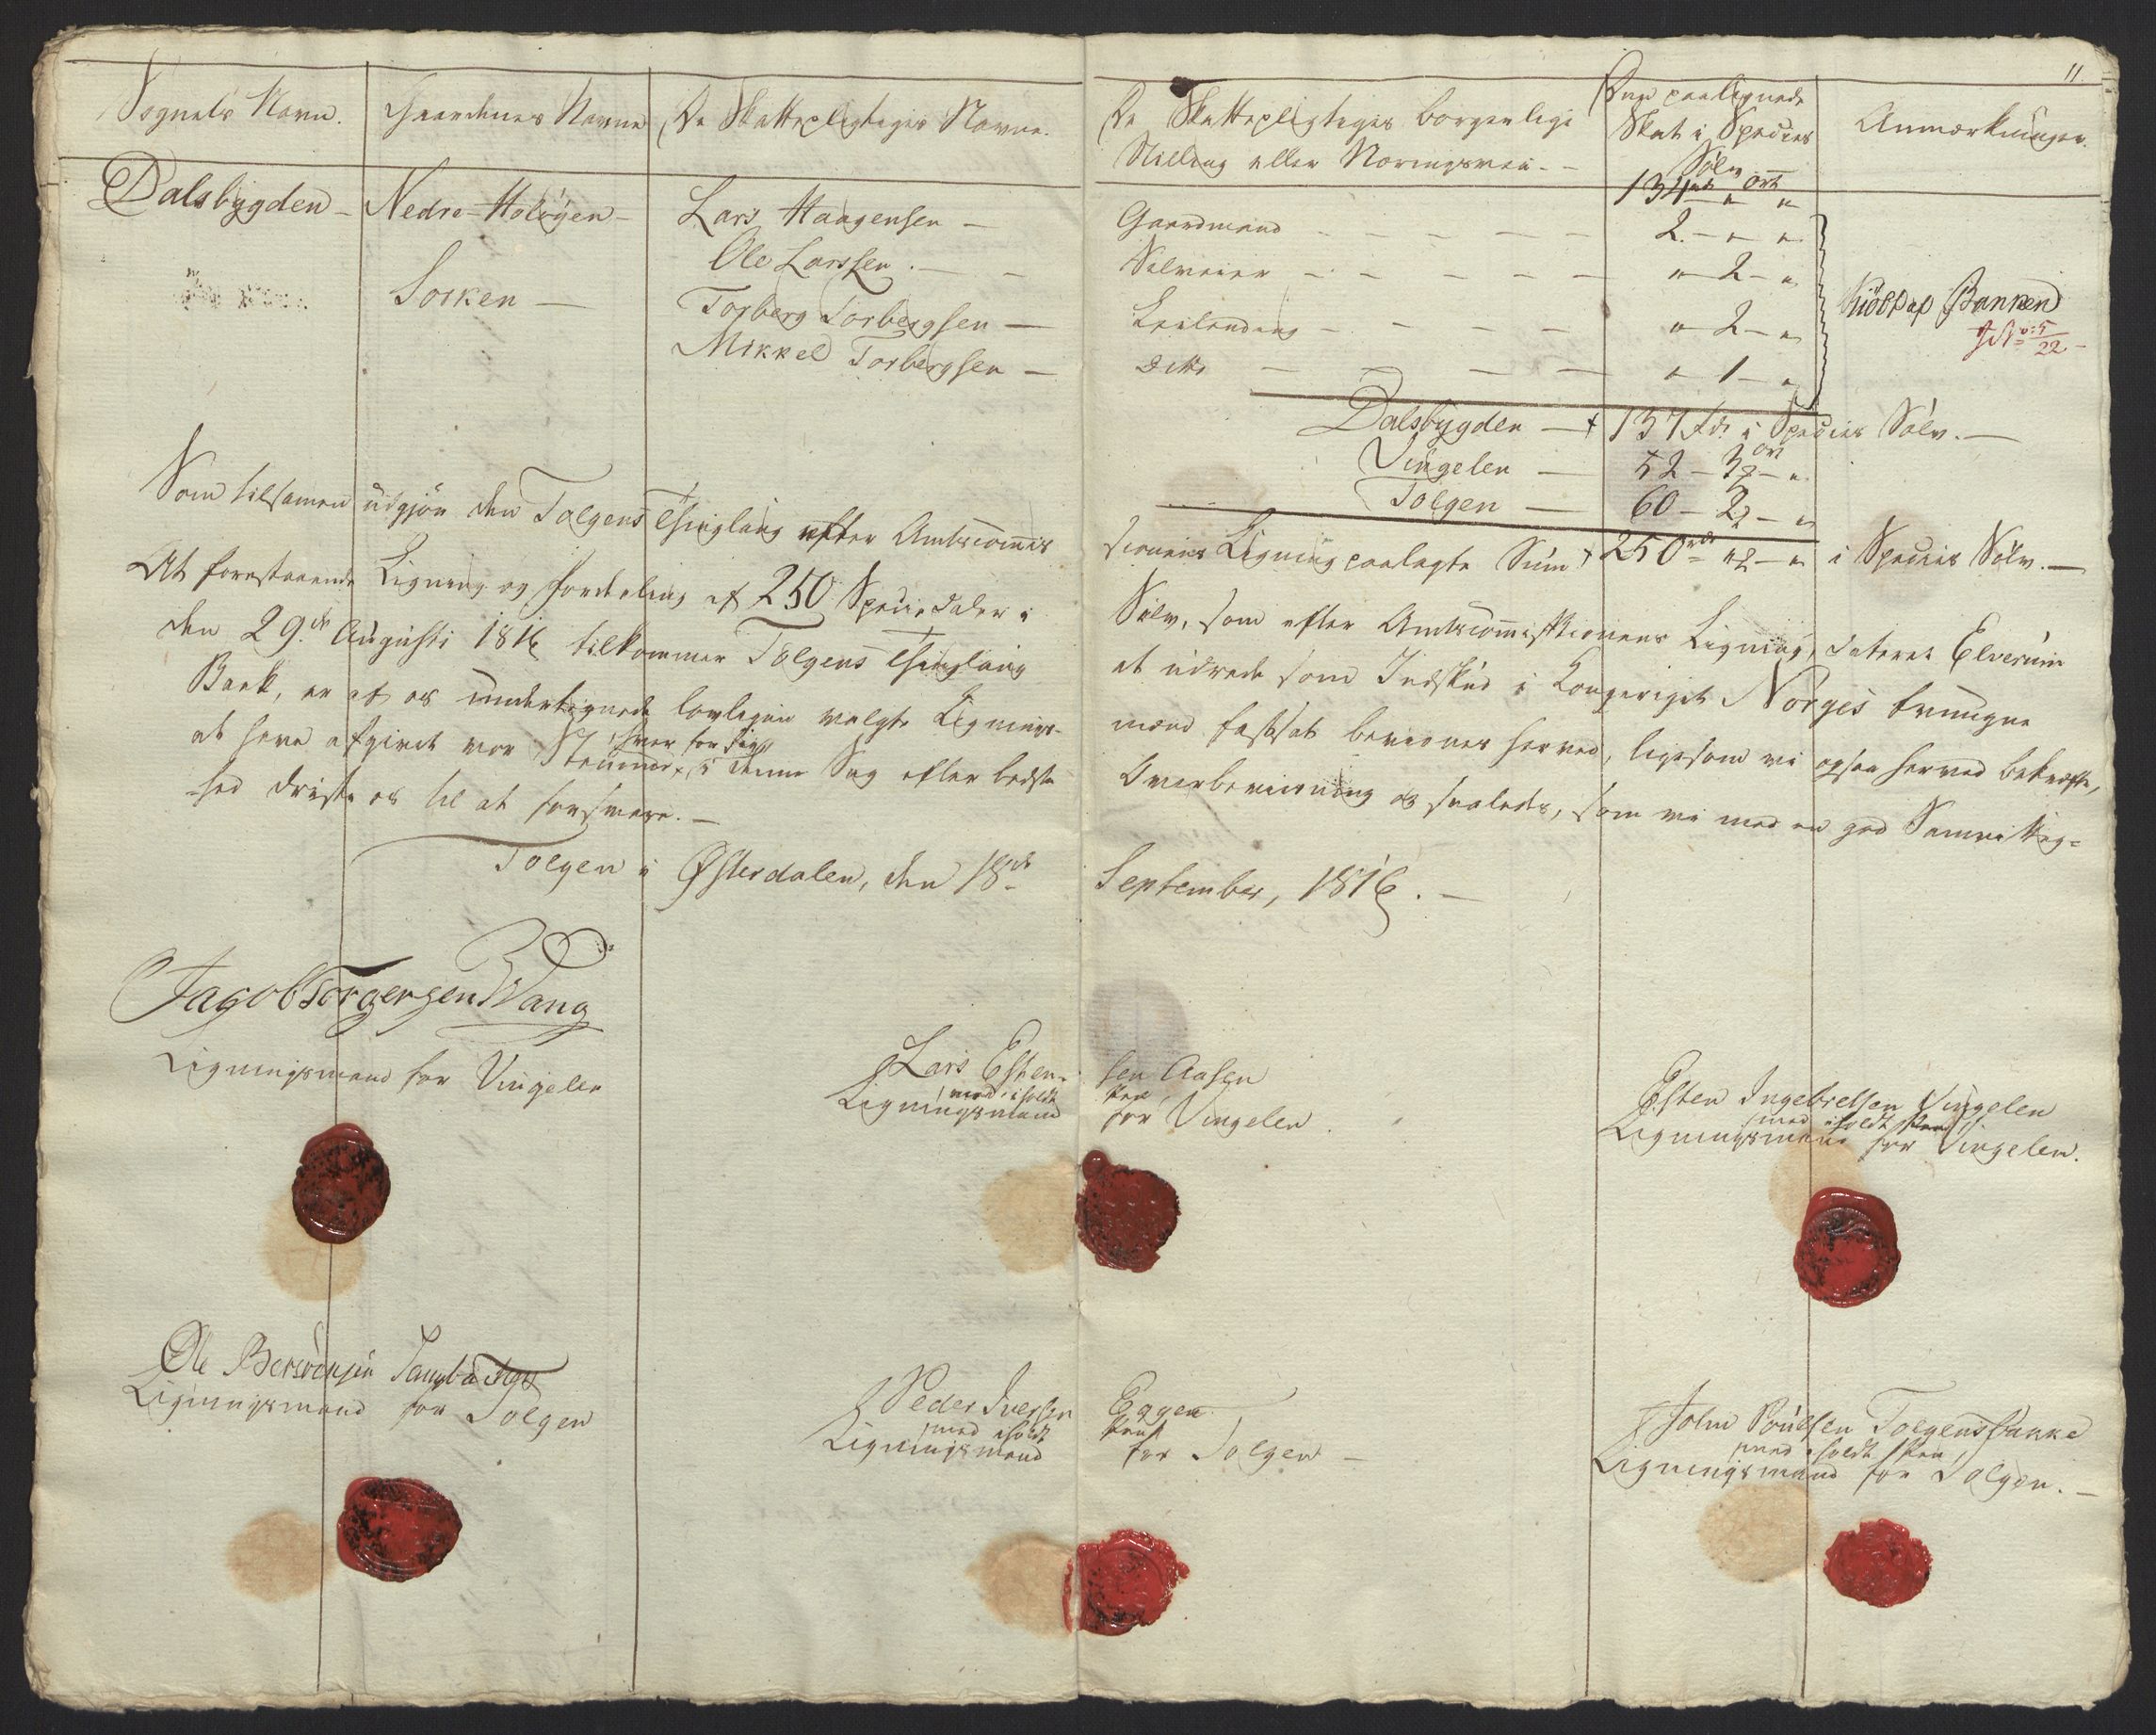 11.
Sognets Navn. Gaardenes Navne De Skattepligtiges Navne. De Skattepligtiges borgerlige Stilling eller Næringsvei. - Den paalignede Skat i Species Sølv Anmærkninger.
134 ort
Dalsbygden - Nedre-Holøyen - Lars Haagensen - Gaardmand - - - - - 2. - " - "
Ole Larssen. - - Selveier - - - - - " - 2 - "
Sorken - Torberg Torbergsen - Leilending - - - - " - 2 - "
Mikkel Torbergsen - ditto - - - - " - 1 - "
Banken
No: 5/22 -
Dalsbygden - 137 Sdr. i Species Sølv. -
Vingelen - 52 - 3 - "
Tolgen - 60 - 2 - "
Som tilsamen udgjør den Tolgens Thinglaug efter Amtscommissionens Ligning paalagte Sum 250 - 2 - " i Species Sølv. -
At forestaaende Ligning og Fordeling af 250 Speciedaler i Sølv, som efter Amtscommissionens Ligning, dateret Elverum
den 29.de Augusti 1816 tilkommer Tolgens Thinglaug at udrede som Indskud i Kongeriget Norges tvungne
Bank, er af os undertegnede lovligen valgte Lignings- mænd fastsat bevidnes herved, ligesom vi ogsaa herved bekræfte,
hver for sig
at have afgivet vor Stemme, i denne Sag efter bedste Overbeviisning og saaledes, som vi med en god Samvittig-
hed driste os til at forsvare. -
Tolgen i Østerdalen, den 18de September, 1816. -
Jagob Torgersen Wang
Ligningsmand for Vingelen
Lars Esten- sen Aasen
med iholdt Pen
Ligningsmand for Vingelen.
Esten Ingebretsen Vingelen
med iholdt Pen
Ligningsmand for Vingelen.
Ole
Ligningsmand for Tolgen
Peder Iversen Eggen
med iholdt Pen
Ligningsmand for Tolgen -
John Poulsen Tolgensbakke
med iholdt Pen
Ligningsmand for Tolgen. -